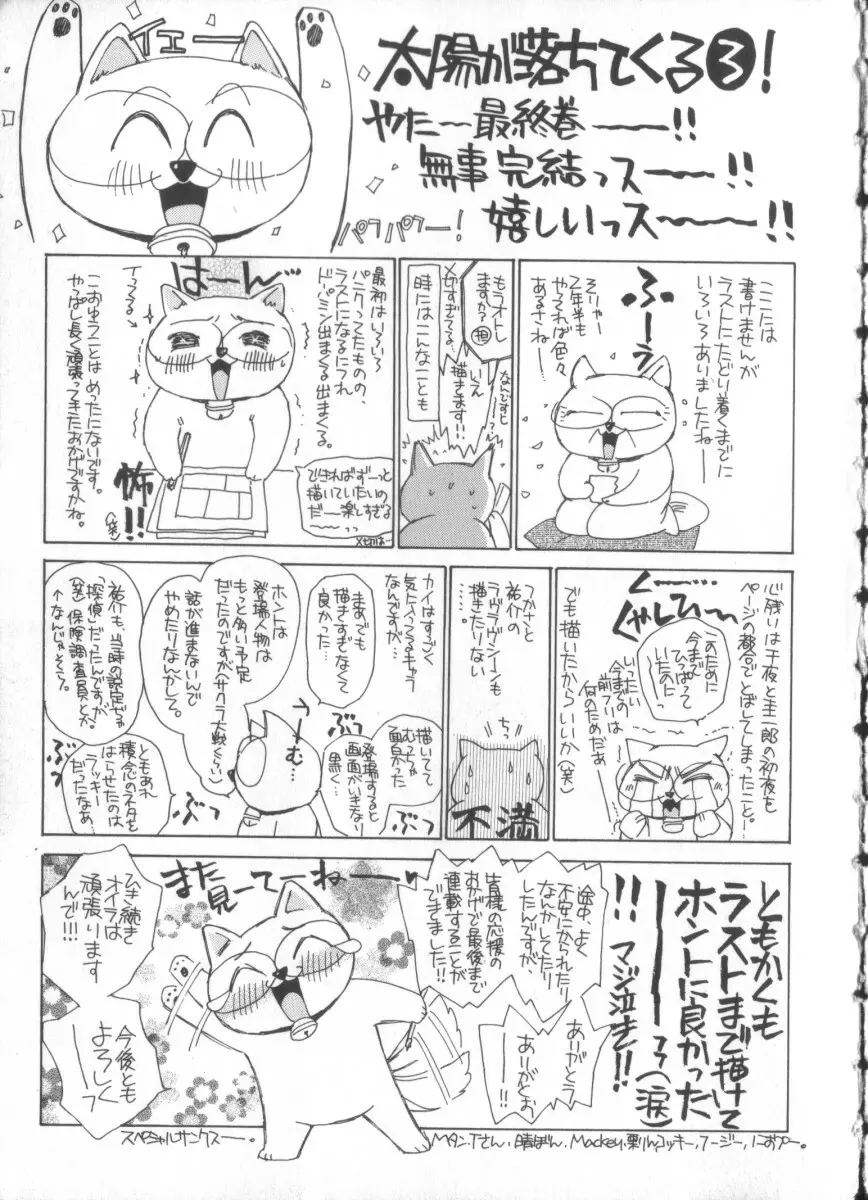 イエー
太陽が落ちてくる③!
やたー最終巻ー!!
無事完結っスー!!
嬉しいっスー!!
パフパフー!
ここでは
書けませんが
ラストにたどり着くまでに
いろいろありましたねー
ふーっ
そりゃー
2年半も
やってれば色々
あるさねー
もうオトし
ますか?
担
〆切すぎてる…
なんですと
ー!?
いえ
描きます!!
時にはこんなことも
はーん
最初はいろいろ
パニクってたものの、
ラストになるにつれ
ドーパミン出まくる出まくる。
イってる
こおゆうことはめったにないです。
やっぱし長く頑張ってきたおかげですかね。
できればずーっと
描いていたいの
だー楽しすぎる
ーっっ
〆切はー
怖!!
(笑)
心残りは千夜と圭一郎の初夜も
ページの都合でとばしてしまったことー!
くー…
くやしひー
このために
今まで
ひっぱって
いたのにっ
いったい
今までの
前フリは
何のためだぁー
でも描いたからいいか(笑)
つかさと
祐介の
ラヴラヴシーンも
描きたりない
……。
ちっ
不満
カイはすごく
気に入ってるキャラ
なんですが…
まあでも
描きすぎなくて
良かった…
描いてて
むっちゃ
面白かった
登場すると
画面がいきなり
黒く…
うーむ…
ぶつ
ぶつ
ホントは
登場人物は
もっと多い予定
だったのですが(サクラ大戦くらい)
話が進まないんで
やめたりなんかして。
祐介も、当時の設定じゃ
「探偵」だったんですが
(笑)保険調査員とか。
↑なんじゃそら。
ともあれ
積念のネタを
はらせたのは
ラッキー
だったなぁ…
ぶつ
ぶつ
ともかくも
ラストまで描けて
ホントに良かった
ーっっ(涙)
!!マジ泣き!!
途中、よく
不安にかられたり
なんかしてたり
したんですが、
皆様の応援の
おかげで最後まで
連載することが
できました!!
ありがとう
ー!!
ありがとお
ー!!
また
見ーてーねー
ひき続き
オイラは
頑張ります
んで!!!
今後とも
よろしく
ーっ
スペシャルサンクスー。
Mタン、Tさん、晴ぼん、Mackey、栗りん、コッキー、フージー、におぷー。